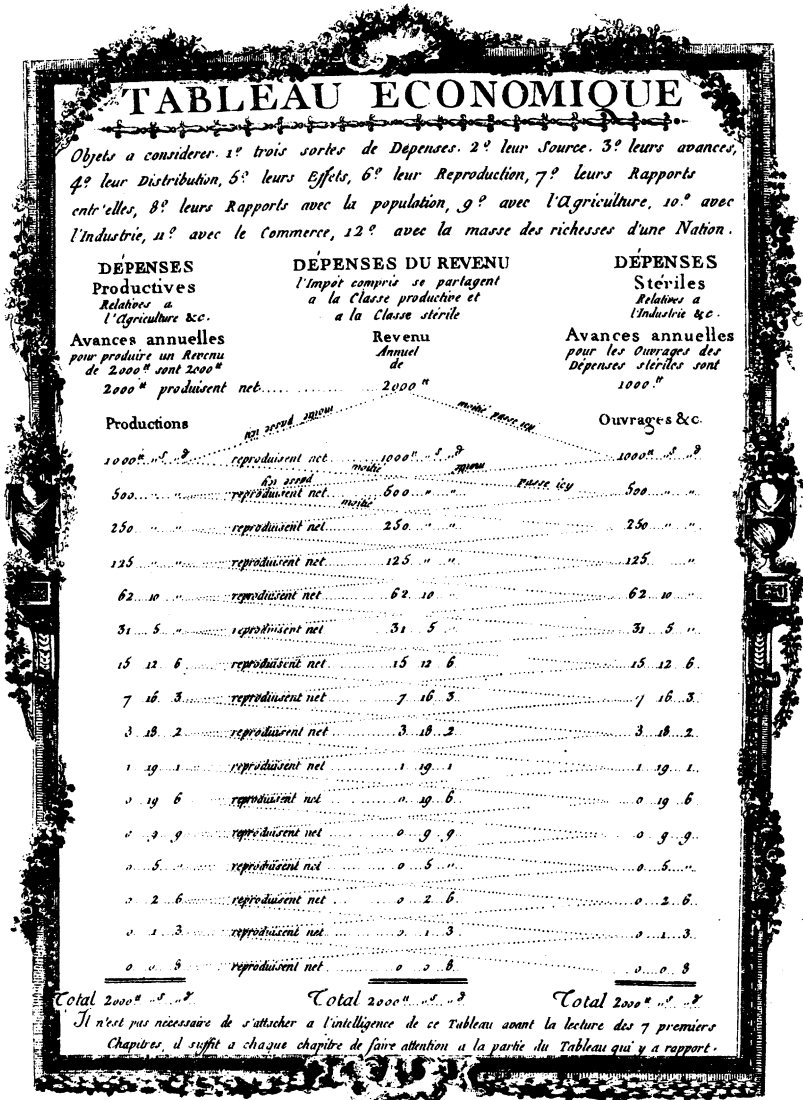 TABLEAU ECONOMIQUE
Objets a considerer. 1º trois sortes de Depenses. 2º leur Source. 3º leurs avances,
4º leur Distribution, 5º leurs Effets, 6º leur Reproduction, 7º leurs Rapports
entr'elles, 8º leurs Rapports avec la population, 9º avec l'Agriculture, 10.º avec
l'Industrie, 11º avec le Commerce, 12º avec la masse des richesses d'une Nation.
DÉPENSES
Productives
Relatives a
l'Agriculture &c.
DÉPENSES DU REVENU
l'Impôt compris se partagent
a la Classe productive et
a la Classe stérile
DÉPENSES
Stériles
Relatives a
l'Industrie &c.
Avances annuelles
pour produire un Revenu
de 2000tt sont 2000tt
2000tt produisent net
Revenu
Annuel
de
2000tt
Avances annuelles
pour les Ouvrages des
Dépenses stériles sont
1000.tt
Productions
moitié passe icy
moitié passe icy
Ouvrages &c.
1000tt „s „d reproduisent net 1000tt „s „d 1000tt „s „d
moitié passe icy
moitié passe icy
500 „ reproduisent net 500 „ „ 500 „
250 „ „ reproduisent net 250 „ „ 250 „ „
125 „ „ reproduisent net 125 „ „ 125 „
62 10 „ reproduisent net 62 10 62 10 „
31 5 „ reproduisent net 31 5 „ 31 5 „
15 12 6 reproduisent net 15 12 6 15 12 6
7 16 3 reproduisent net 7 16 3 7 16 3
3 18 2 reproduisent net 3 18 2 3 18 2
1 19 1 reproduisent net 1 19 1 1 19 1
0 19 6 reproduisent net 0 19 6 0 19 6
0 9 9 reproduisent net 0 9 9 0 9 9
0 5 „ reproduisent net 0 5 „ 0 5 „
0 2 6 reproduisent net 0 2 6 0 2 6
0 1 3 reproduisent net 0 1 3 0 1 3
0 0 8 reproduisent net 0 0 8 0 0 8
Total 2000tt „s „d Total 2000tt „s „d Total 2000tt „s „d
Il n'est pas necessaire de s'attacher a l'intelligence de ce Tableau avant la lecture des 7 premiers
Chapitres, il suffit a chaque chapitre de faire attention a la partie du Tableau qui y a rapport.